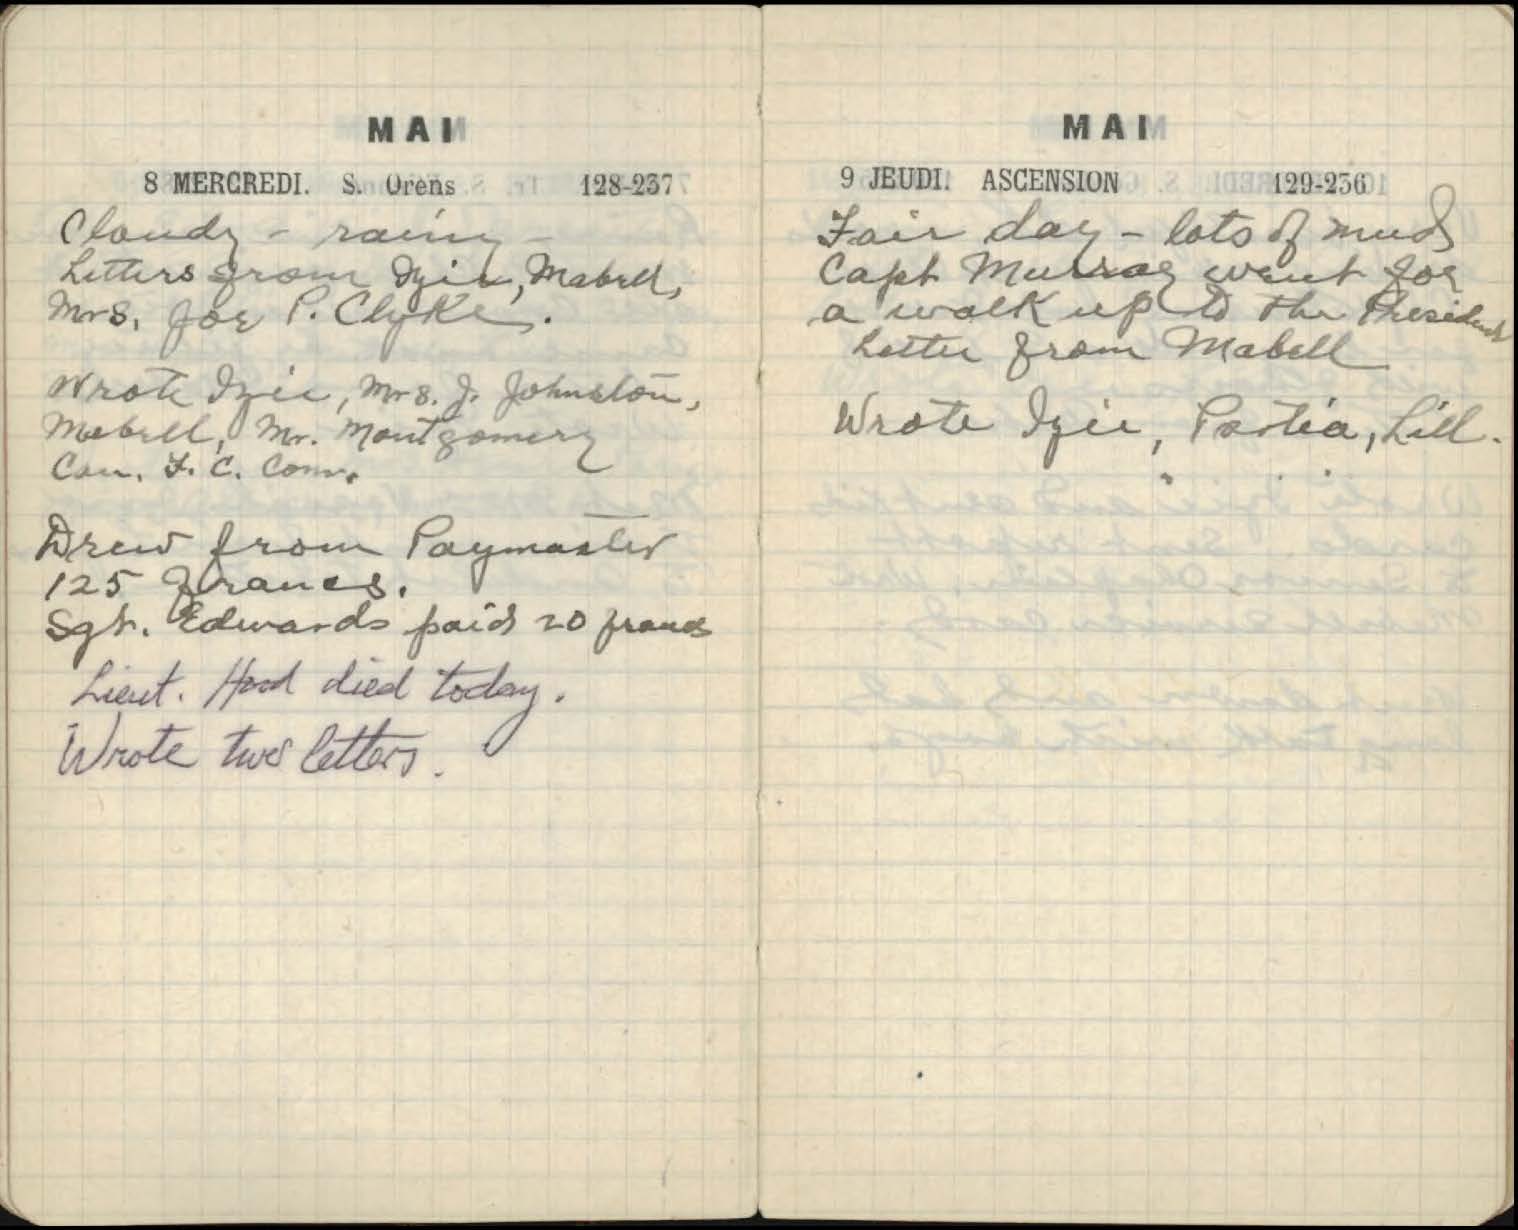 MAI
8 MERCREDI. S. Orens 128-237
Cloudy - rainy -
Letters from Izie, Mabell,
Mrs. Joe P. Clyke.
Wrote Izie, Mrs. J. Johnston,
Mabell, Mr. Montgomery
Can. F. C. Com.
Drew from Paymaster
125 francs.
Sgt. Edwards paid 20 francs
Lieut. Hood died today.
Wrote two letters.
MAI
9 JEUDI. ASCENSION 129-236
Fair day - lots of mud
Capt Murray went for
a walk up to the President
Letter from Mabell
Wrote Izie, Portia, Lill.